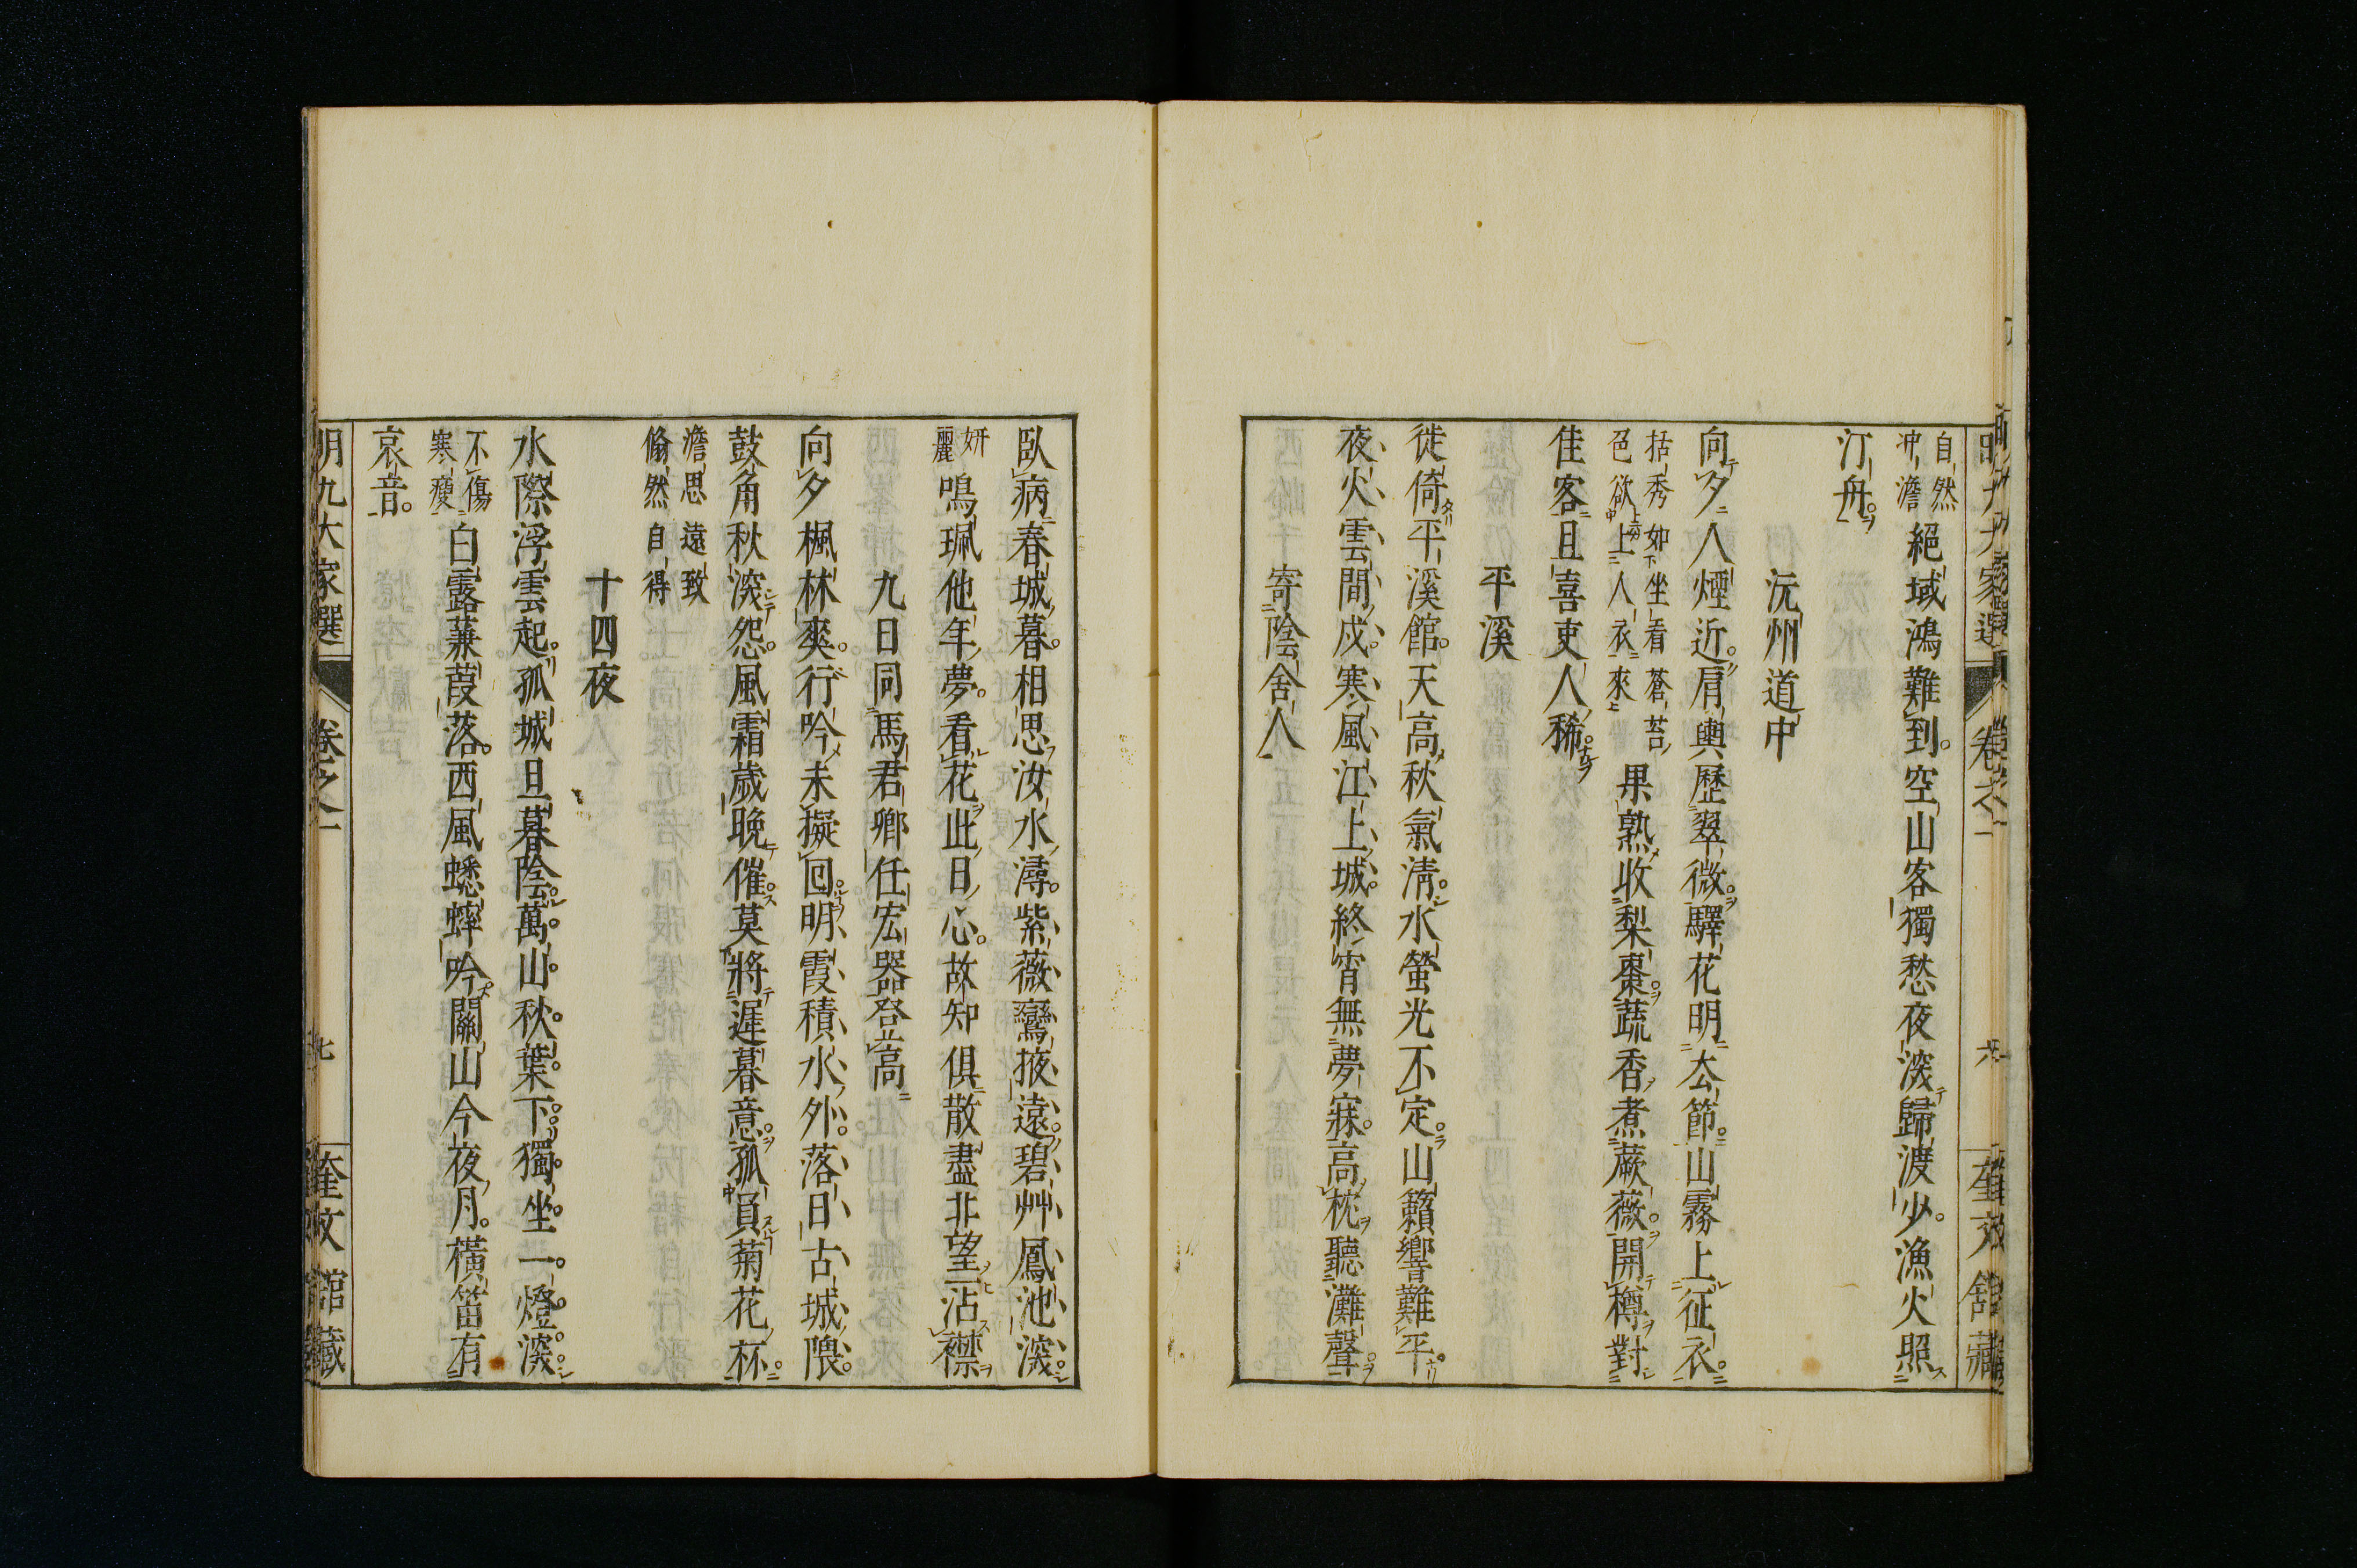 自然
冲澹
絕域鴻難到空山客獨愁夜深歸渡少漁火照
汀舟
沅州道中
向夕人煙近肩輿歷翠微驛花明厺節山霧上征衣
括秀如坐看蒼苔
色欲上人衣來
果熟收梨棗蔬香煮蕨薇開樽對
佳客且喜吏人稀
平溪
徙倚平溪館天高秋氣淸水螢光不定山籟響難平
夜火雲間戍寒風江上城終宵無夢寐高枕聽灘聲
寄陰舍人
臥病春城暮相思汝水潯紫薇鸞掖遠碧艸鳳池深
妍
麗
鳴珮他年夢看花此日心故知俱散盡非望一沾襟
九日同馬君卿任宏器登高
向夕楓林爽行吟未擬回明霞積水外落日古城隈
鼓角秋深怨風霜歲晚催莫將遲暮意孤負菊花杯
澹思遠致
翛然自得
十四夜
水際浮雲起孤城旦暮陰萬山秋葉下獨坐一燈深
不傷
寒瘦
白露蒹葭落西風蟋蟀吟關山今夜月橫笛有
哀音
明九大家選
卷之一
七
奎文館藏